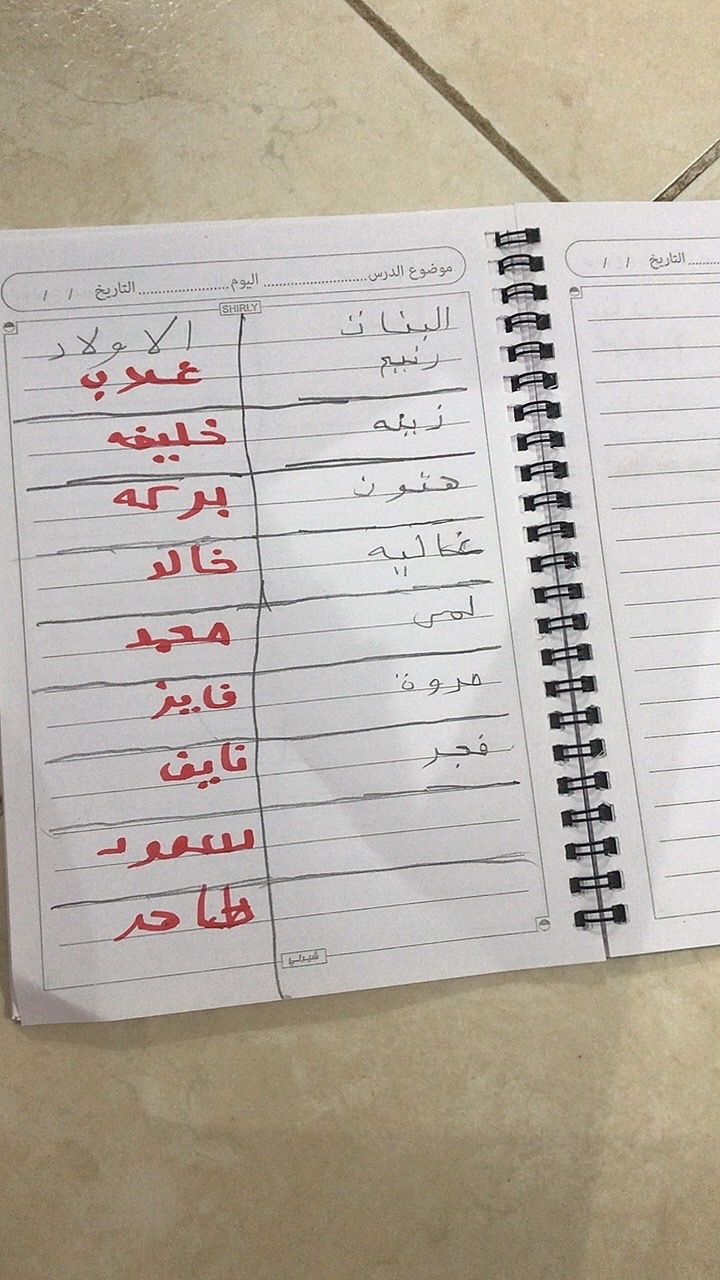 موضوع الدرس......................... اليوم...................... التاريخ / /
SHIRLY
البنات الاولاد
غلاب
زينه خليفه
هتون بركه
غاليه خالد
لمى محمد
مروة فايز
فجر نايف
سعود
شيرلي
......... التاريخ / /